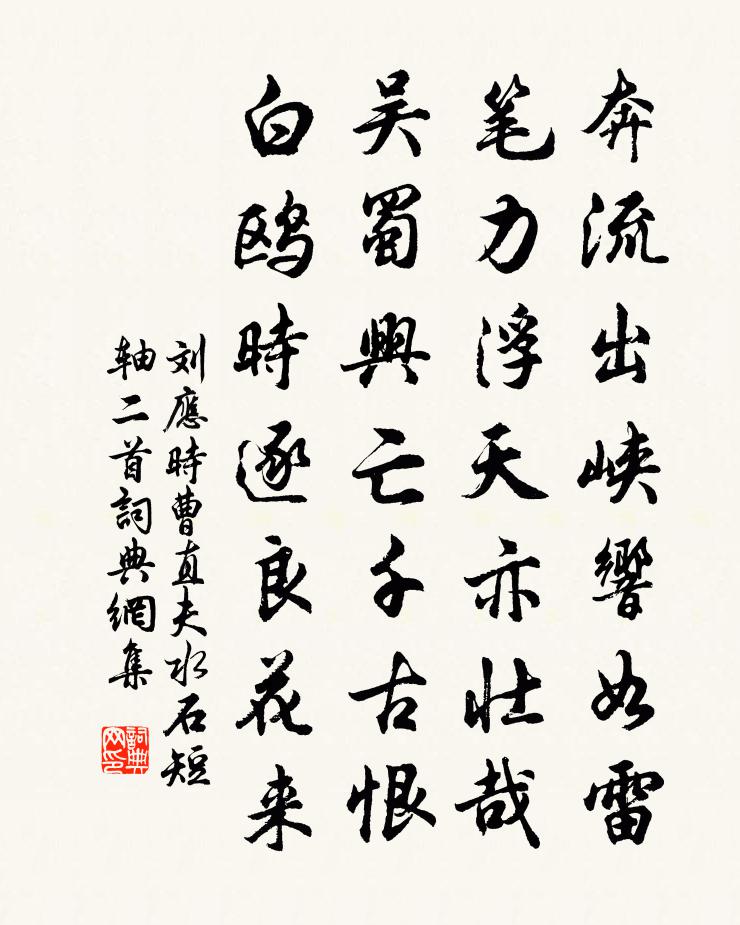 奔流出峡響如雷
笔力浮天亦壮哉
吴蜀興亡千古恨
白鸥時逐良花来
刘應時曹直夫水石短
轴二首詞典網集
詞典网印